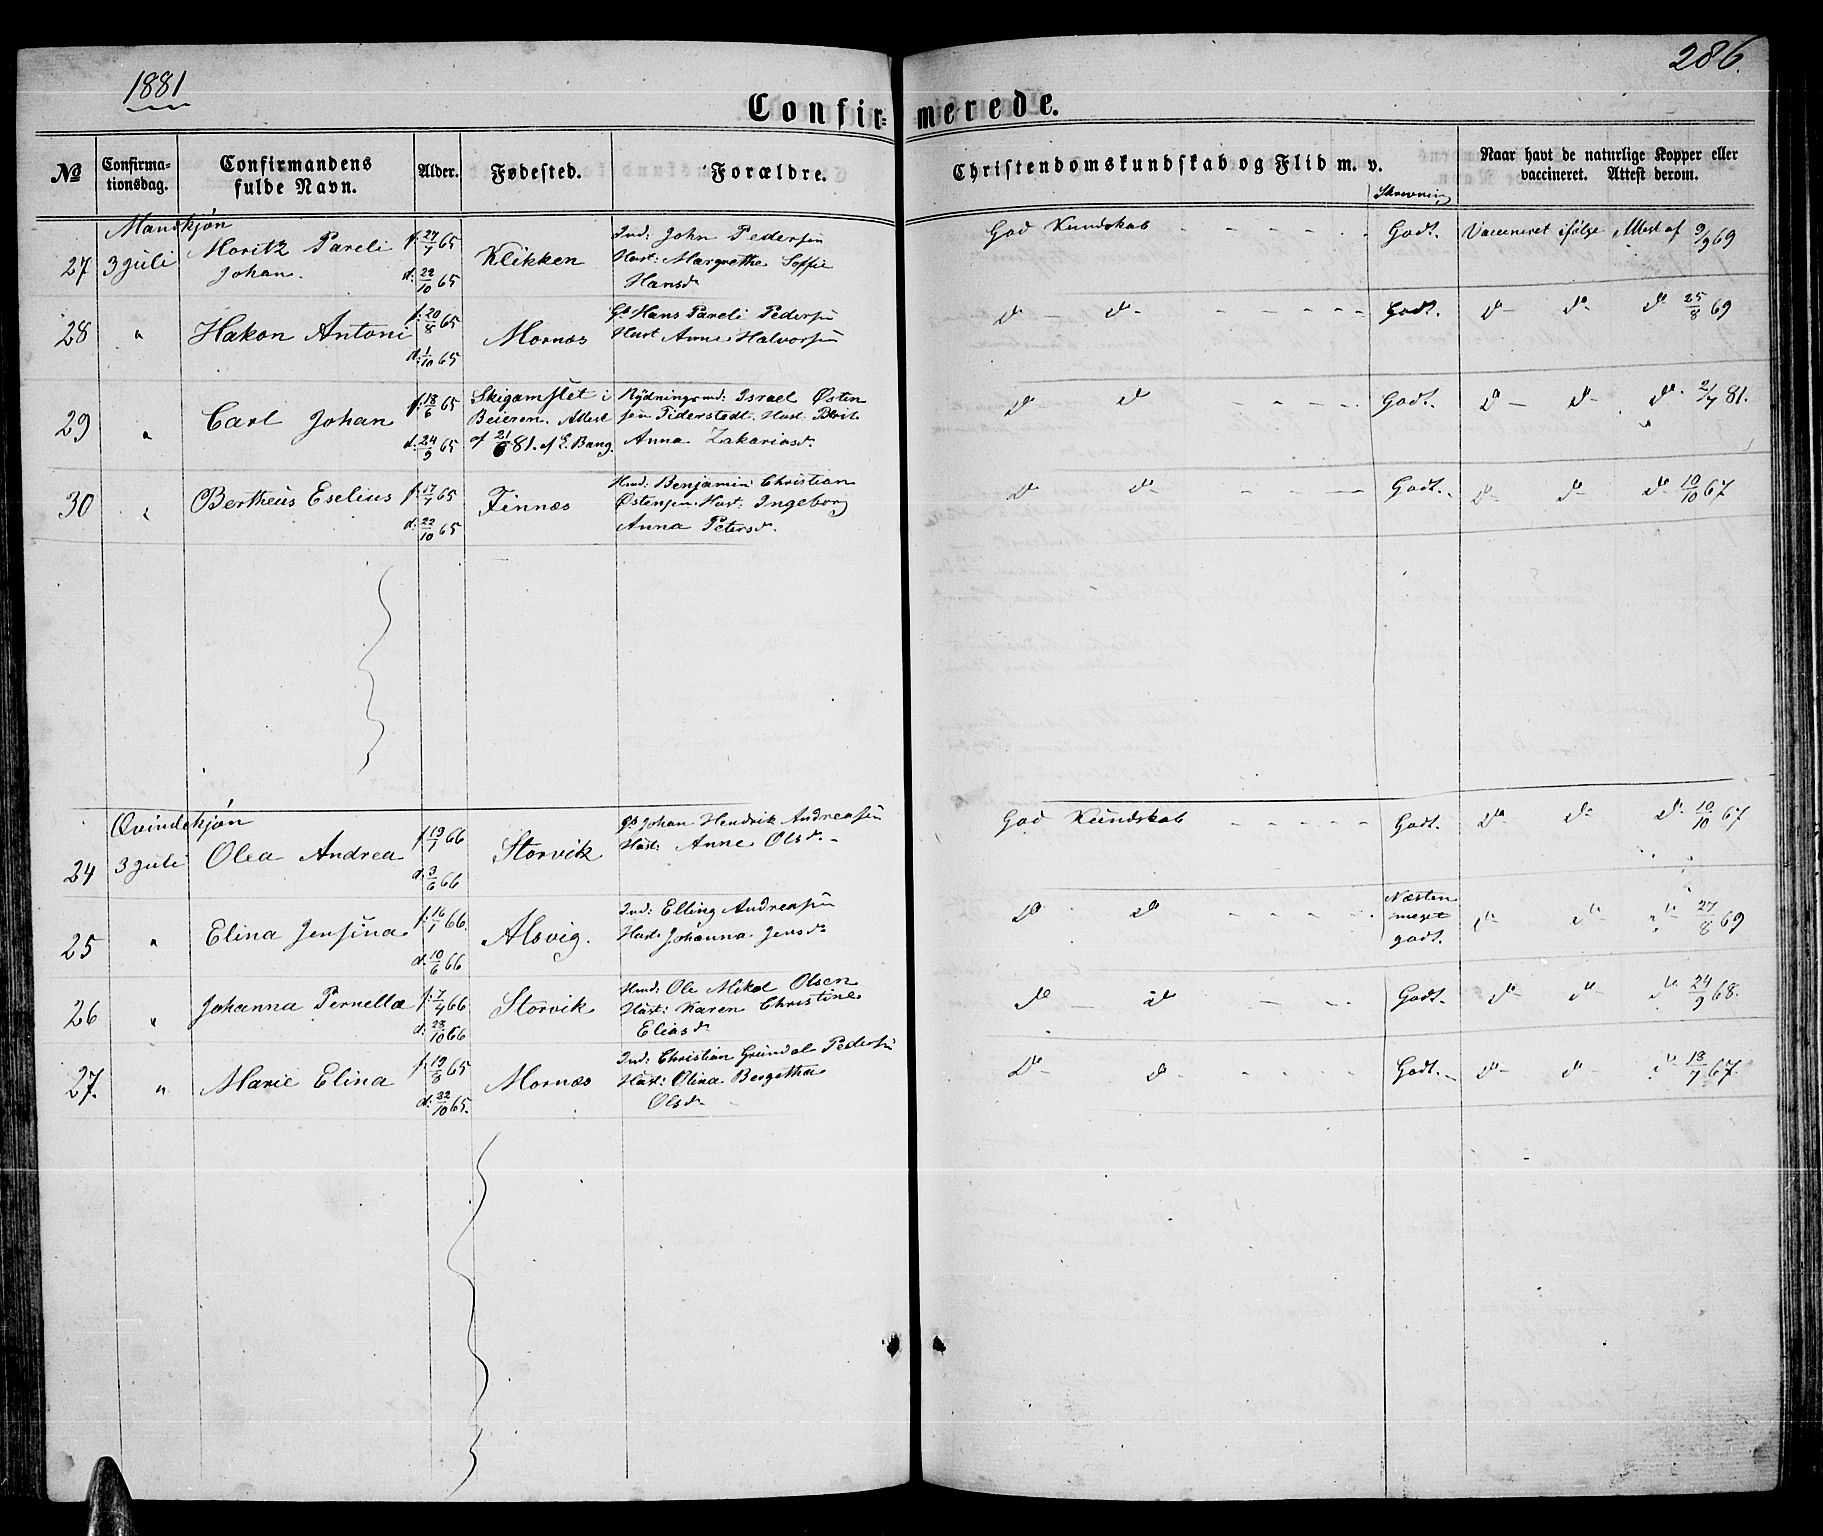 1881
286.
Confir= merede.
No
Confirma-
tionsdag.
Confirmandens
fulde Navn.
Alder.
Fødested.
Forældre.
Christendomskundskab og Flid m. v.
Skrivning
Naar havt de naturlige Kopper eller
vaccineret. Attest derom.
Mandkjøn
27 3 Juli Moritz Pareli f. 27/7 65 Klikken Ind: John Pedersen God Kundskab - - - - Godt. Vaccineret ifølge Attest af 9/9 69
Johan. d. 22/10 65 Hust: Margrethe Soffie
Hansd.
28 " Hakon Antoni f. 20/8 65 Mornæs Gb. Hans Pareli Pedersen Do - Do - - - - Godt. Do - Do Do 25/8 69
d. 1/10 65 Hust Anne Halvorsen
29 " Carl Johan f. 18/6 65 Skigamslet i Rydningsmd: Israel Østen Do Do - - - - Godt. Do - Do - Do. 2/7 81.
Beieren. Attest sen Tiderstedt. Hust. Berit
d. 24/9 65 af 21/6 81. af E. Bang. Anna Zakariasd.
30 " Bertheus Eselius f. 17/7 65 Finnæs Hmd: Benjamin Christian Do Do - - - Godt. Do - Do - Do 10/10 67
Østensen Hust: Ingeborg
d. 22/10 65 Anna Petersd.
Qvindekjøn
24 3 Juli Olea Andrea f. 19/1 66 Storvik Gb. Johan Hendrik Andreassen God Kundskab - - - - Godt. Do Do Do 10/10 67
d. 3/6 66 Hust: Anne Olsd.
25 " Elina Jensina f: 16/1 66. Alsvig. Ind: Elling Andreasen Do Do - - - - Næsten
meget
godt. Do Do Do 27/8 69
d. 10/6 66 Hust: Johanna Jensd.
26 " Johanna Pernella f: 7/4 66 Storvik Hmd: Ole Mikal Olsen Do - Do - - - Godt. Do Do Do 24/9 68.
d. 28/10 66 Hust: Karen Christine
Eliasd.
27. " Marie Elina f. 19/8 65 Mornæs Ind: Christian Grundal Pedersen Do - Do - - - - Godt. Do Do Do 18/7 67.
d: 22/10 65. Hust: Olina Bergitha
Olsd.